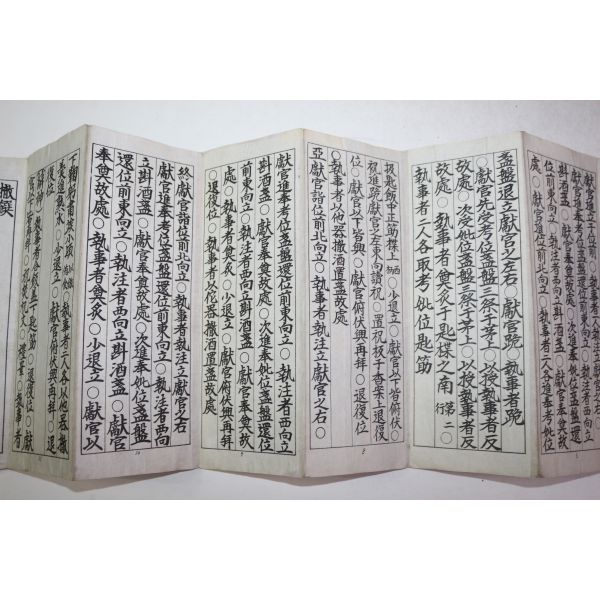 獻官立于位前
獻官進奉考位盞盤還位前東向立
執注者西向立斟酒盞
獻官奉奠故處
次進奉妣位盞盤還
處○獻官進詣位前北向立○執事者二人各進奉考妣位
盞盤退立獻官之左右○獻官跪○執事者跪
○獻官先受考位盞盤三祭于茅上○以授執事者反
故處○次受妣位盞盤三祭于茅上○以授執事者反
故處○執事者奠炙于匙楪之南第二行
執事者二人各取考妣位匙筯
扱匙飯中正筯楪上西○少退立○獻官以下皆俯伏○
祝進跪獻官之左東向讀祝○置祝板于香案上退復
位○獻官以下皆興○獻官俯伏興再拜○退復位
○執事者以他器撤酒置盞故處
亞獻官詣位前北向立○執事者執注立獻官之右○
獻官進奉考位盞盤還位前東向立○執注者西向立
斟酒盞○獻官奉奠故處○次進奉妣位盞盤還位
前東向立○執注者西向立斟酒盞○獻官奉奠故
處○執事者奠炙○少退立○獻官俯伏興再拜
○退復位○執事者以佗器撤酒置盞故處
終獻官詣位前北向立○執事者執注立獻官之右
獻官進奉考位盞盤還位前東向立○執注者西向
立斟酒盞○獻官奉奠故處○次進奉妣位盞盤
還位前東向立○執注者西向立斟酒盞○獻官
奉奠故處○執事者奠炙○少退立○獻官以
執事者二人各以他器撤
羹進熟水○少退立○獻官俯伏興再拜○退
復位
執事者各飯盖下匙筯○退復位○獻
禮畢○執事者
撤饌